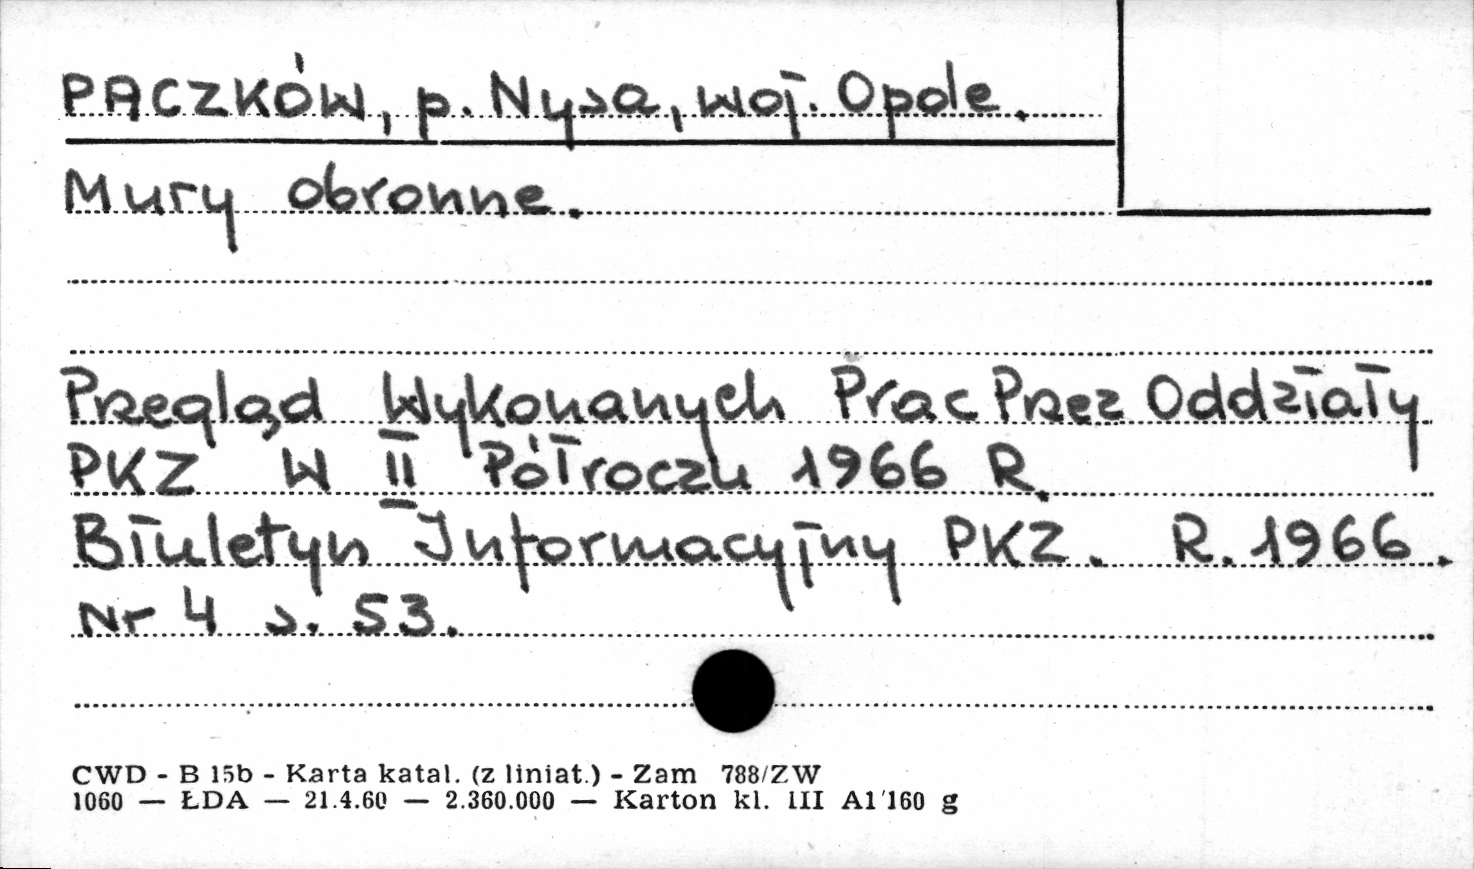 PACZKÓW, p. Nysa, woj. Opole.
Mury obronne.
Przegląd Wykonanych Prac Przez Oddziały
PKZ W II Półroczu 1966 R.
Biuletyn Informacyjny PKZ. R. 1966.
Nr 4 s. 53.
CWD - B 15b - Karta katal. (z liniat.) - Zam 788/ZW
1060 — ŁDA — 21.4.60 — 2.360.000 — Karton kl. III A1 160 g